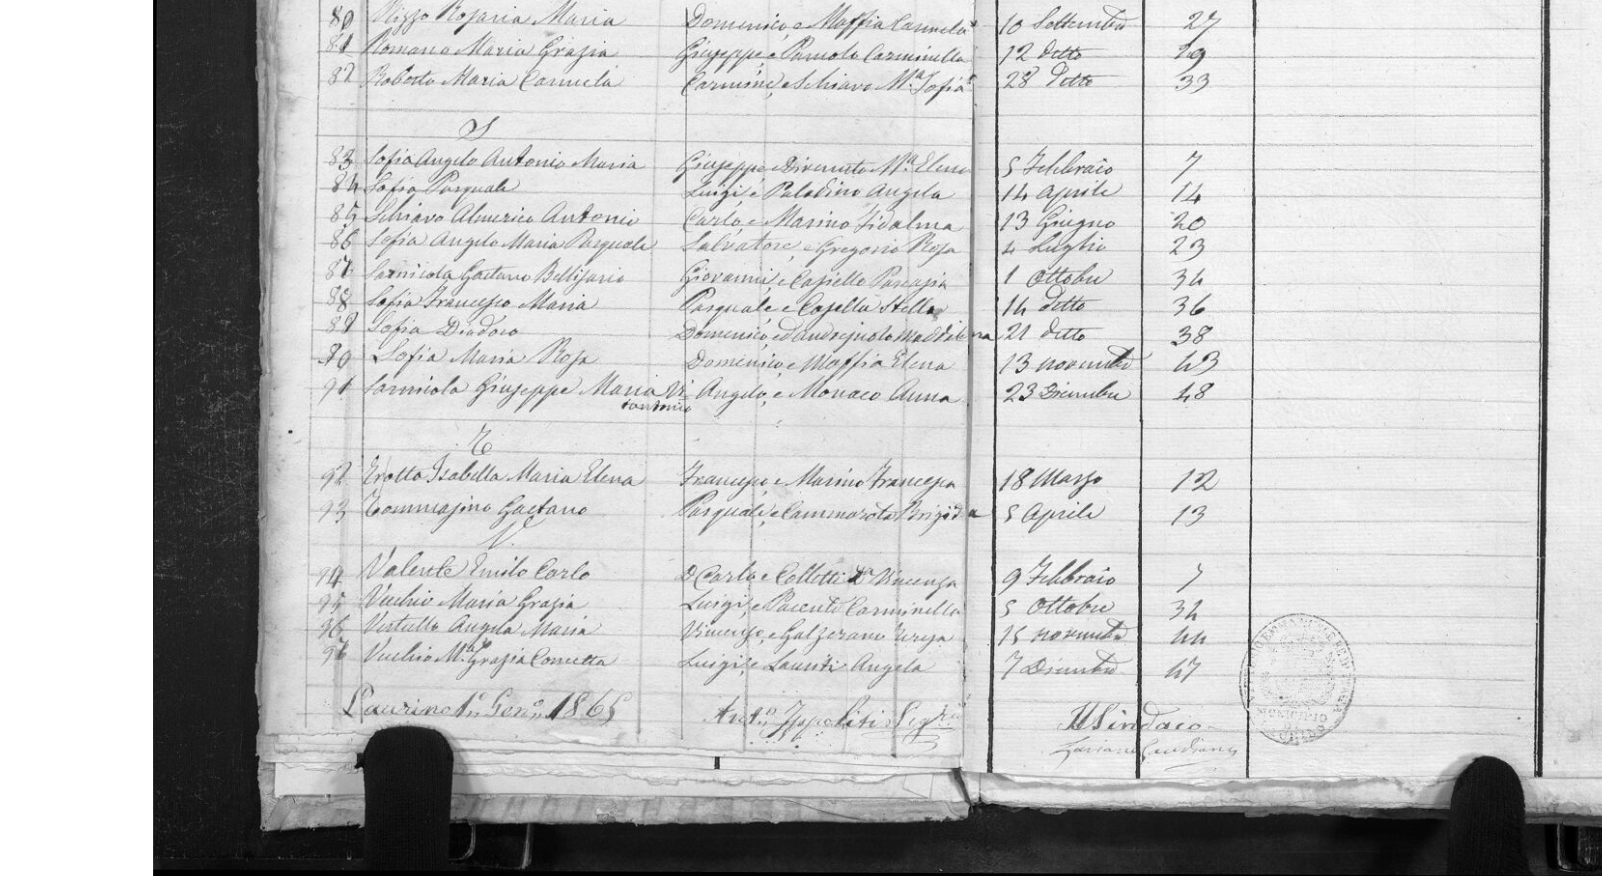 80 Rizzo Rosaria Maria Domenico e Maffia Carmela 10 Settembre 27
81 Romano Maria Grazia Giuseppe e Carminella 12 detto 29
82 Roberto Maria Carmela Carmine e Schiavo M.a Sofia 28 detto 33
S
83 Sofia Angelo Antonio Maria Giuseppe e M.a Elena 5 Febbraio 7
84 Sofia Pasquale Luigi e Paladino Angela 14 Aprile 14
85 Schiavo Almerico Antonio Carlo e Marino Fidalma 13 Giugno 20
86 Sofia Angelo Maria Pasquale Salvatore e Gregorio Rosa 4 Luglio 23
87 Sarnicola Gaetano Bellisario Giovanni e Casiello 1 Ottobre 34
88 Sofia Francesco Maria Pasquale e Casella Stella 14 detto 36
89 Sofia Diodoro Domenico e 21 detto 38
90 Sofia Maria Rosa Domenico e Maffia Elena 13 Novembre 43
91 Sarnicola Giuseppe Maria Vi Angelo, e Monaco Anna 23 Dicembre 48
T
92 Trotta Isabella Maria Elena Francesco e Marino Francesca 18 Marzo 12
93 Tommasino Gaetano Pasquale e Cammarota Brigida 5 Aprile 13
V
94 Valente Emilo Carlo D Carlo e Colletti D.a Vincenza 9 Febbraio 7
95 Vecchio Maria Grazia Luigi, e Pacente Carminella 5 Ottobre 32
96 Vertullo Angela Maria Vincenzo, e Galzerano Teresa 15 Novembre 44
97 Vecchio M.a Grazia Concetta Luigi, e Angela 7 Dicembre 47
Laurino 1° Gen.o 1865 Ant.o Ippoliti Seg.rio Il Sindaco